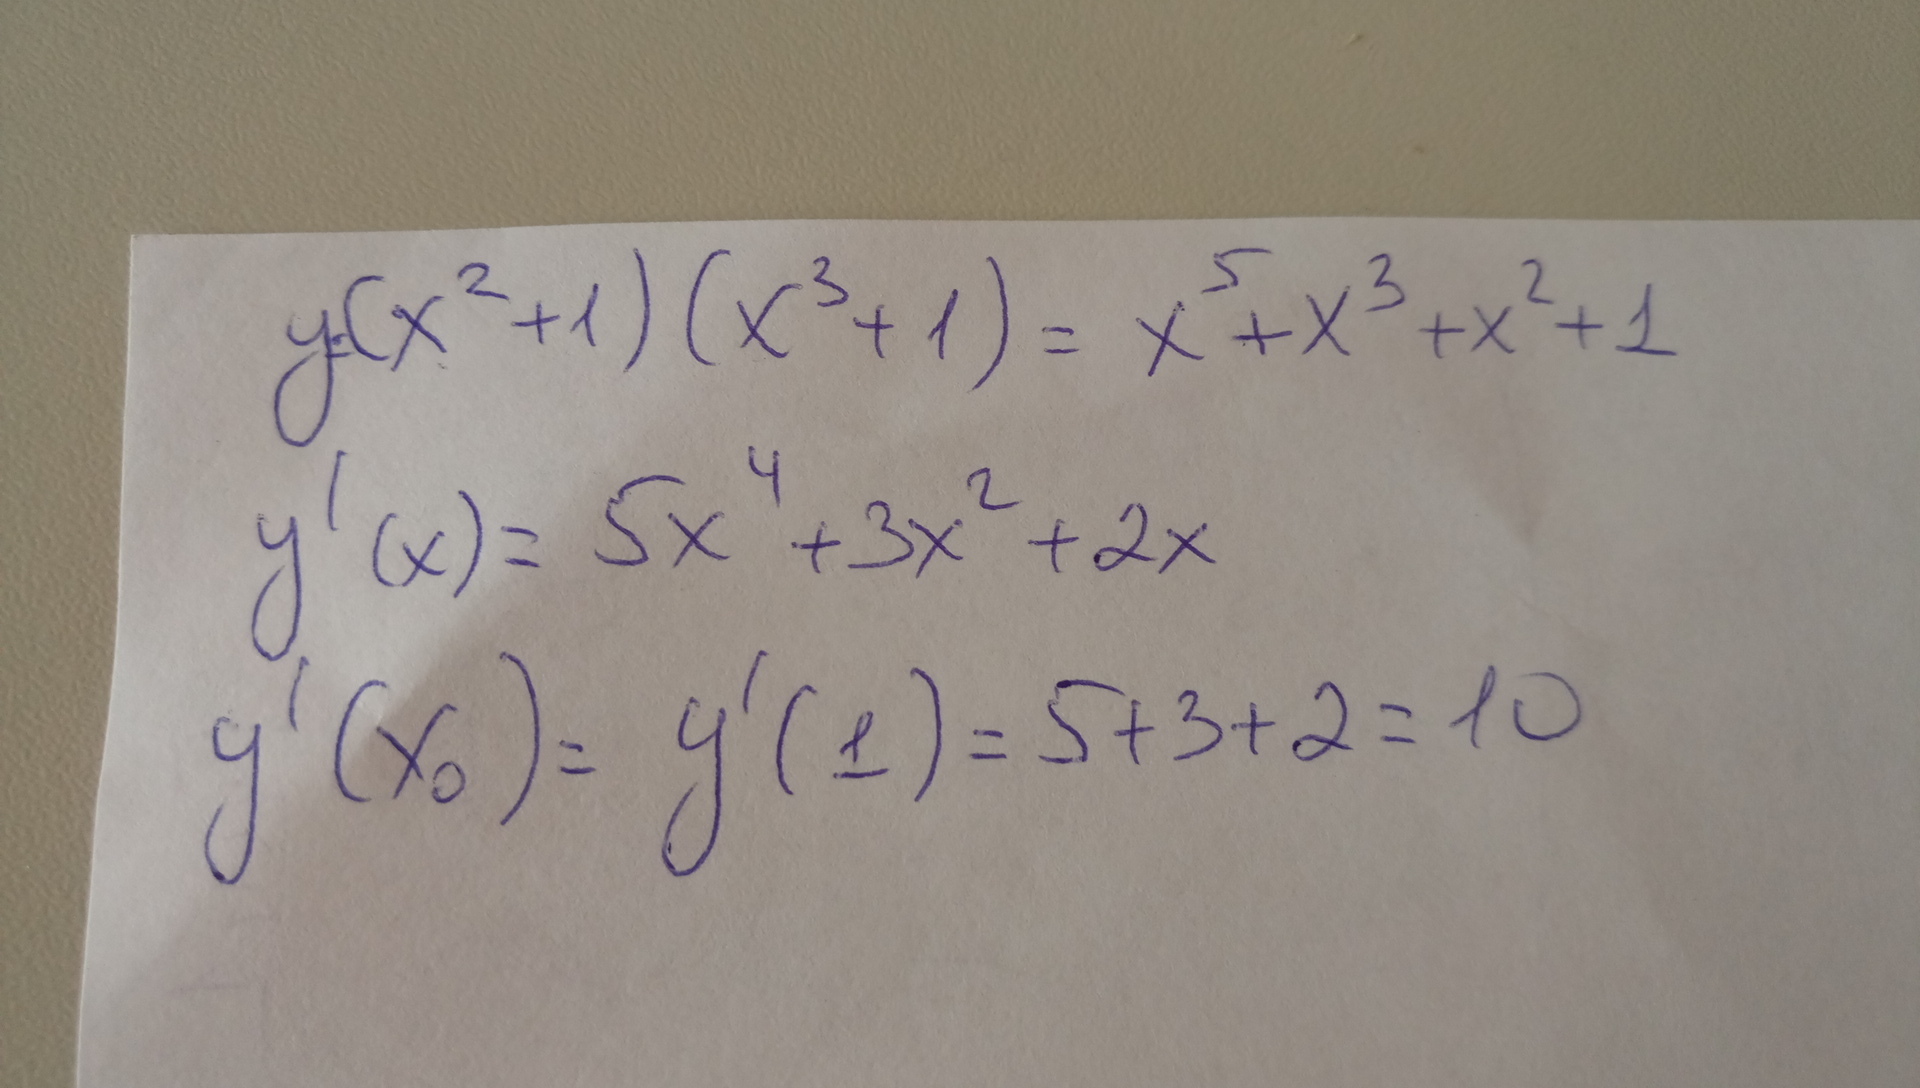 y=(x²+1)(x³+1)=x⁵+x³+x²+1
y'(x)=5x⁴+3x²+2x
y'(x₀)=y'(1)=5+3+2=10